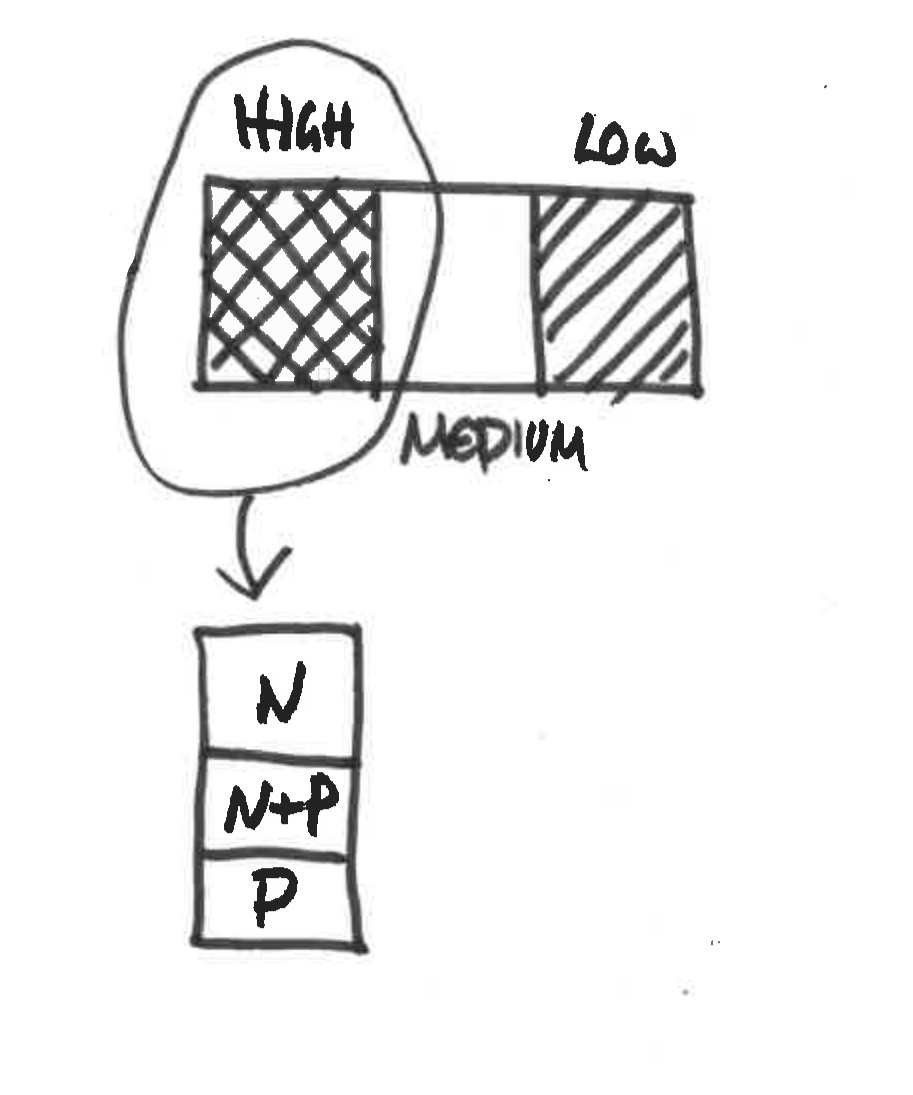 HIGH
LOW
MEDIUM
N
N+P
P